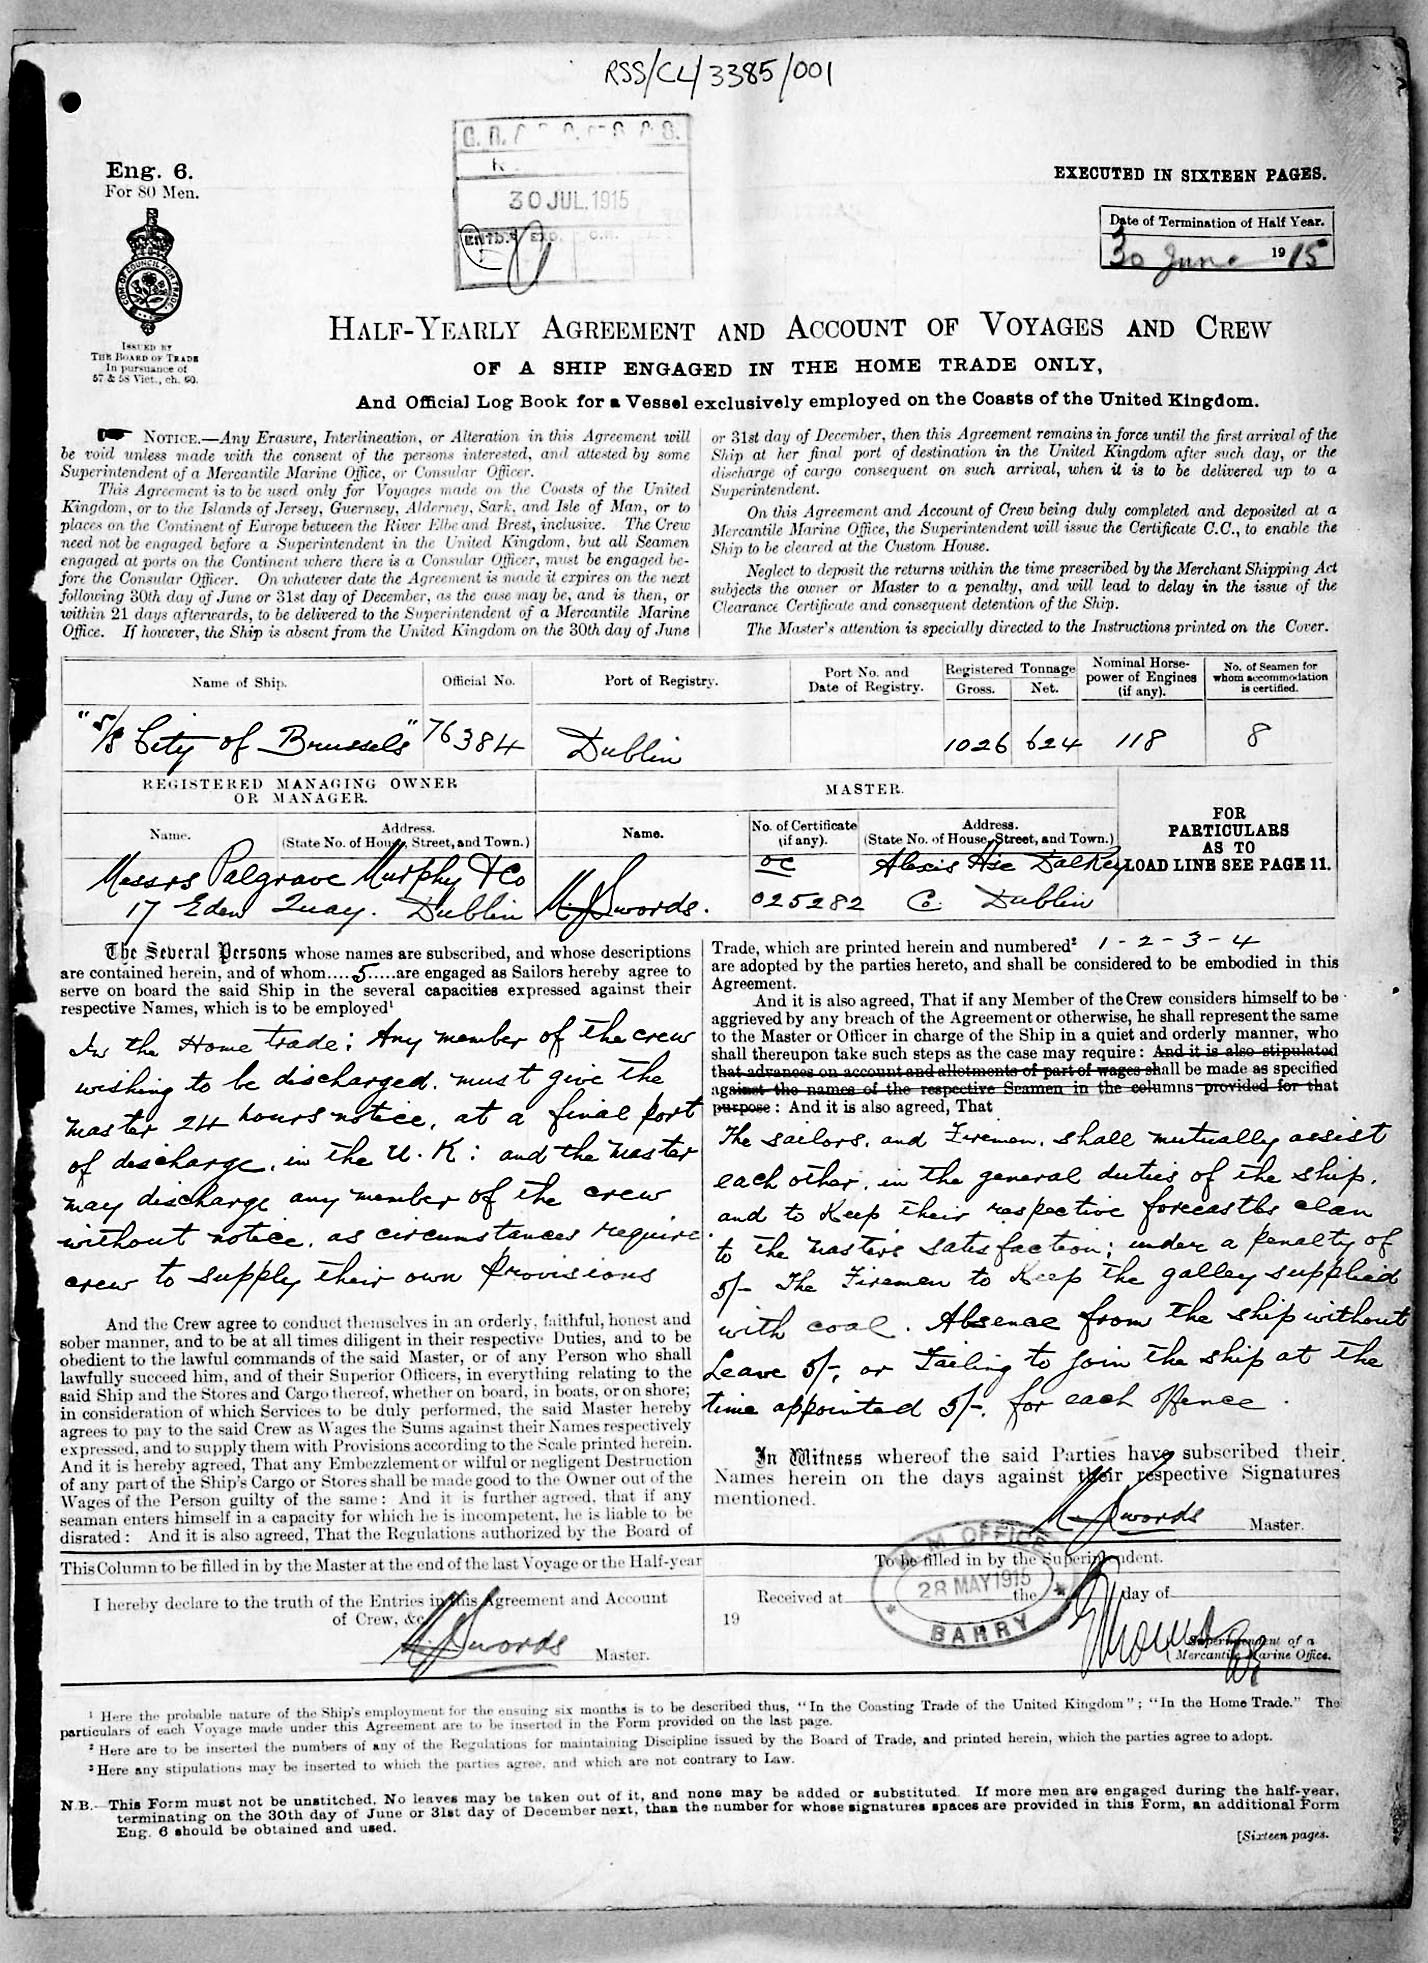 RSS/CL/3385/001
30 JUL. 1915
Eng. 6.
For 80 Men.
COM. OF COUNCIL FOR TRADE
ISSUED BY
THE BOARD OF TRADE
In pursuance of
57 & 58 Vict., ch. 60.
EXECUTED IN SIXTEEN PAGES.
Date of Termination of Half Year.
30 June 1915
HALF-YEARLY AGREEMENT AND ACCOUNT OF VOYAGES AND CREW
OF A SHIP ENGAGED IN THE HOME TRADE ONLY,
And Official Log Book for a Vessel exclusively employed on the Coasts of the United Kingdom.
NOTICE.—Any Erasure, Interlineation, or Alteration in this Agreement will
be void unless made with the consent of the persons interested, and attested by some
Superintendent of a Mercantile Marine Office, or Consular Officer.
This Agreement is to be used only for Voyages made on the Coasts of the United
Kingdom, or to the Islands of Jersey, Guernsey, Alderney, Sark, and Isle of Man, or to
places on the Continent of Europe between the River Elbe and Brest, inclusive. The Crew
need not be engaged before a Superintendent in the United Kingdom, but all Seamen
engaged at ports on the Continent where there is a Consular Officer, must be engaged be-
fore the Consular Officer. On whatever date the Agreement is made it expires on the next
following 30th day of June or 31st day of December, as the case may be, and is then, or
within 21 days afterwards, to be delivered to the Superintendent of a Mercantile Marine
Office. If however, the Ship is absent from the United Kingdom on the 30th day of June
or 31st day of December, then this Agreement remains in force until the first arrival of the
Ship at her final port of destination in the United Kingdom after such day, or the
discharge of cargo consequent on such arrival, when it is to be delivered up to a
Superintendent.
On this Agreement and Account of Crew being duly completed and deposited at a
Mercantile Marine Office, the Superintendent will issue the Certificate C.C., to enable the
Ship to be cleared at the Custom House.
Neglect to deposit the returns within the time prescribed by the Merchant Shipping Act
subjects the owner or Master to a penalty, and will lead to delay in the issue of the
Clearance Certificate and consequent detention of the Ship.
The Master's attention is specially directed to the Instructions printed on the Cover.
Name of Ship. Official No. Port of Registry. Port No. and Date of Registry. Registered Tonnage Gross. Net. Nominal Horse-power of Engines (if any). No. of Seamen for whom accommodation is certified.
"S/S City of Brussels" 76384 Dublin 1026 624 118 8
REGISTERED MANAGING OWNER
OR MANAGER.
MASTER.
Name. Address. (State No. of House, Street, and Town.) Name. No. of Certificate (if any). Address. (State No. of House, Street, and Town.)
FOR
PARTICULARS
AS TO
LOAD LINE SEE PAGE 11.
Messrs Palgrave Murphy & Co OC Alexis Hse Dalkey
17 Eden Quay. Dublin M. J Swords. 025282 Co. Dublin
The Several Persons whose names are subscribed, and whose descriptions
are contained herein, and of whom....5.....are engaged as Sailors hereby agree to
serve on board the said Ship in the several capacities expressed against their
respective Names, which is to be employed¹
In the Home trade; Any member of the crew
wishing to be discharged. must give the
master 24 hours notice, at a final port
of discharge, in the U. K: and the master
may discharge any member of the crew
without notice, as circumstances require
crew to supply their own Provisions
And the Crew agree to conduct themselves in an orderly, faithful, honest and
sober manner, and to be at all times diligent in their respective Duties, and to be
obedient to the lawful commands of the said Master, or of any Person who shall
lawfully succeed him, and of their Superior Officers, in everything relating to the
said Ship and the Stores and Cargo thereof, whether on board, in boats, or on shore;
in consideration of which Services to be duly performed, the said Master hereby
agrees to pay to the said Crew as Wages the Sums against their Names respectively
expressed, and to supply them with Provisions according to the Scale printed herein.
And it is hereby agreed, That any Embezzlement or wilful or negligent Destruction
of any part of the Ship's Cargo or Stores shall be made good to the Owner out of the
Wages of the Person guilty of the same: And it is further agreed, that if any
seaman enters himself in a capacity for which he is incompetent, he is liable to be
disrated: And it is also agreed, That the Regulations authorized by the Board of
Trade, which are printed herein and numbered² 1 - 2 - 3 - 4
are adopted by the parties hereto, and shall be considered to be embodied in this
Agreement.
And it is also agreed, That if any Member of the Crew considers himself to be
aggrieved by any breach of the Agreement or otherwise, he shall represent the same
to the Master or Officer in charge of the Ship in a quiet and orderly manner, who
shall thereupon take such steps as the case may require: And it is also stipulated
that advances on account and allotments of part of wages shall be made as specified
against the names of the respective Seamen in the columns provided for that
purpose: And it is also agreed, That
The sailors, and Firemen, shall mutually assist
each other, in the general duties of the ship.
and to Keep their respective forecastles clean
to the master's satisfaction; under a penalty of
5/- The Firemen to Keep the galley supplied
with coal. Absence from the ship without
Leave 5/-, or Failing to join the ship at the
time appointed 5/-, for each offence.
In Witness whereof the said Parties have subscribed their
Names herein on the days against their respective Signatures
mentioned.
M. J Swords Master.
This Column to be filled in by the Master at the end of the last Voyage or the Half-year
I hereby declare to the truth of the Entries in this Agreement and Account
of Crew, &c.
M. J Swords Master.
To be filled in by the Superintendent.
Received at the day of
19
M.M OFFICE
28 MAY 1915
BARRY
Superintendent of a
Mercantile Marine Office.
¹ Here the probable nature of the Ship's employment for the ensuing six months is to be described thus, "In the Coasting Trade of the United Kingdom"; "In the Home Trade." The
particulars of each Voyage made under this Agreement are to be inserted in the Form provided on the last page.
² Here are to be inserted the numbers of any of the Regulations for maintaining Discipline issued by the Board of Trade, and printed herein, which the parties agree to adopt.
³ Here any stipulations may be inserted to which the parties agree, and which are not contrary to Law.
N.B.—This Form must not be unstitched. No leaves may be taken out of it, and none may be added or substituted. If more men are engaged during the half-year,
terminating on the 30th day of June or 31st day of December next, than the number for whose signatures spaces are provided in this Form, an additional Form
Eng. 6 should be obtained and used.
[Sixteen pages.